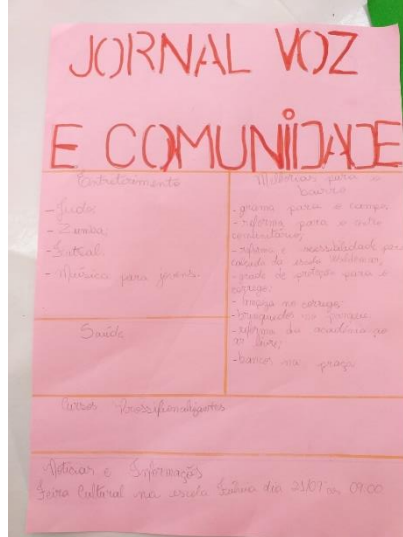 JORNAL VOZ
E COMUNIDADE
Entretenimento
- Judo;
- Zumba;
- Futsal;
- Música para jovens.
Melhorias para o
bairro
- grama para o campo;
- reforma para o centro
comunitário;
- reforma e acessibilidade para
da escola
- grade de proteção para o
córrego;
- limpeza no córrego;
- brinquedos no parque;
- reforma da academia ao
ar livre;
- bancos na praça
Saúde
Cursos Profissionalizantes
Noticias e Informação
Feira Cultural na escola dia 21/07 as 09:00